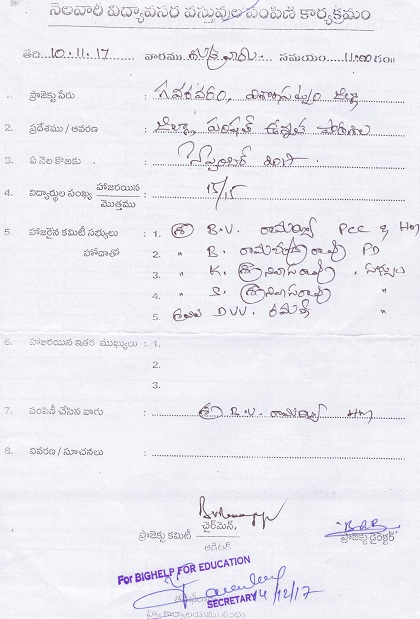 నెలవారీ విద్యావసర వస్తువుల పంపిణీ కార్యక్రమం
తేది 10.11.17 వారము శుక్రవారం సమయం 11:00 గం॥
1. ప్రాజెక్టు పేరు : గవరవరం, విశాఖపట్నం జిల్లా
2. ప్రదేశము / ఆవరణ : జిల్లా పరిషత్ ఉన్నత పాఠశాల
3. ఏ నెల కొఱకు : 2017
4. విద్యార్థుల సంఖ్య హాజరయిన / మొత్తము : 15/15
5. హాజరైన కమిటీ సభ్యులు : 1. శ్రీ B.V. రామయ్య PCC & HM
హోదాతో 2. " B. PD
3. " K. శ్రీనివాసరావు , సభ్యులు
4. " S. శ్రీనివాసరావు "
5. DVV. రమణి "
6. హాజరయిన ఇతర ముఖ్యులు : 1.
2.
3.
7. పంపిణీ చేసిన వారు : శ్రీ B.V. రామయ్య HM
8. వివరణ / సూచనలు :
ప్రాజెక్టు కమిటీ ఛైర్మెన్, ప్రాజెక్టు డైరెక్టర్
ఆడిటర్
For BIGHELP FOR EDUCATION
SECRETARY 4/12/17